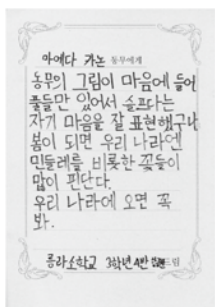 아에다 가논 동무에게
동무의 그림이 마음에 들어
풀들만 있어서 슬프다는
자기 마음을 잘 표현했구나
봄이 되면 우리 나라엔
민들레를 비롯한 꽃들이
많이 핀단다.
우리 나라에 오면 꼭
봐.
릉라소학교 3학년 4반 드림